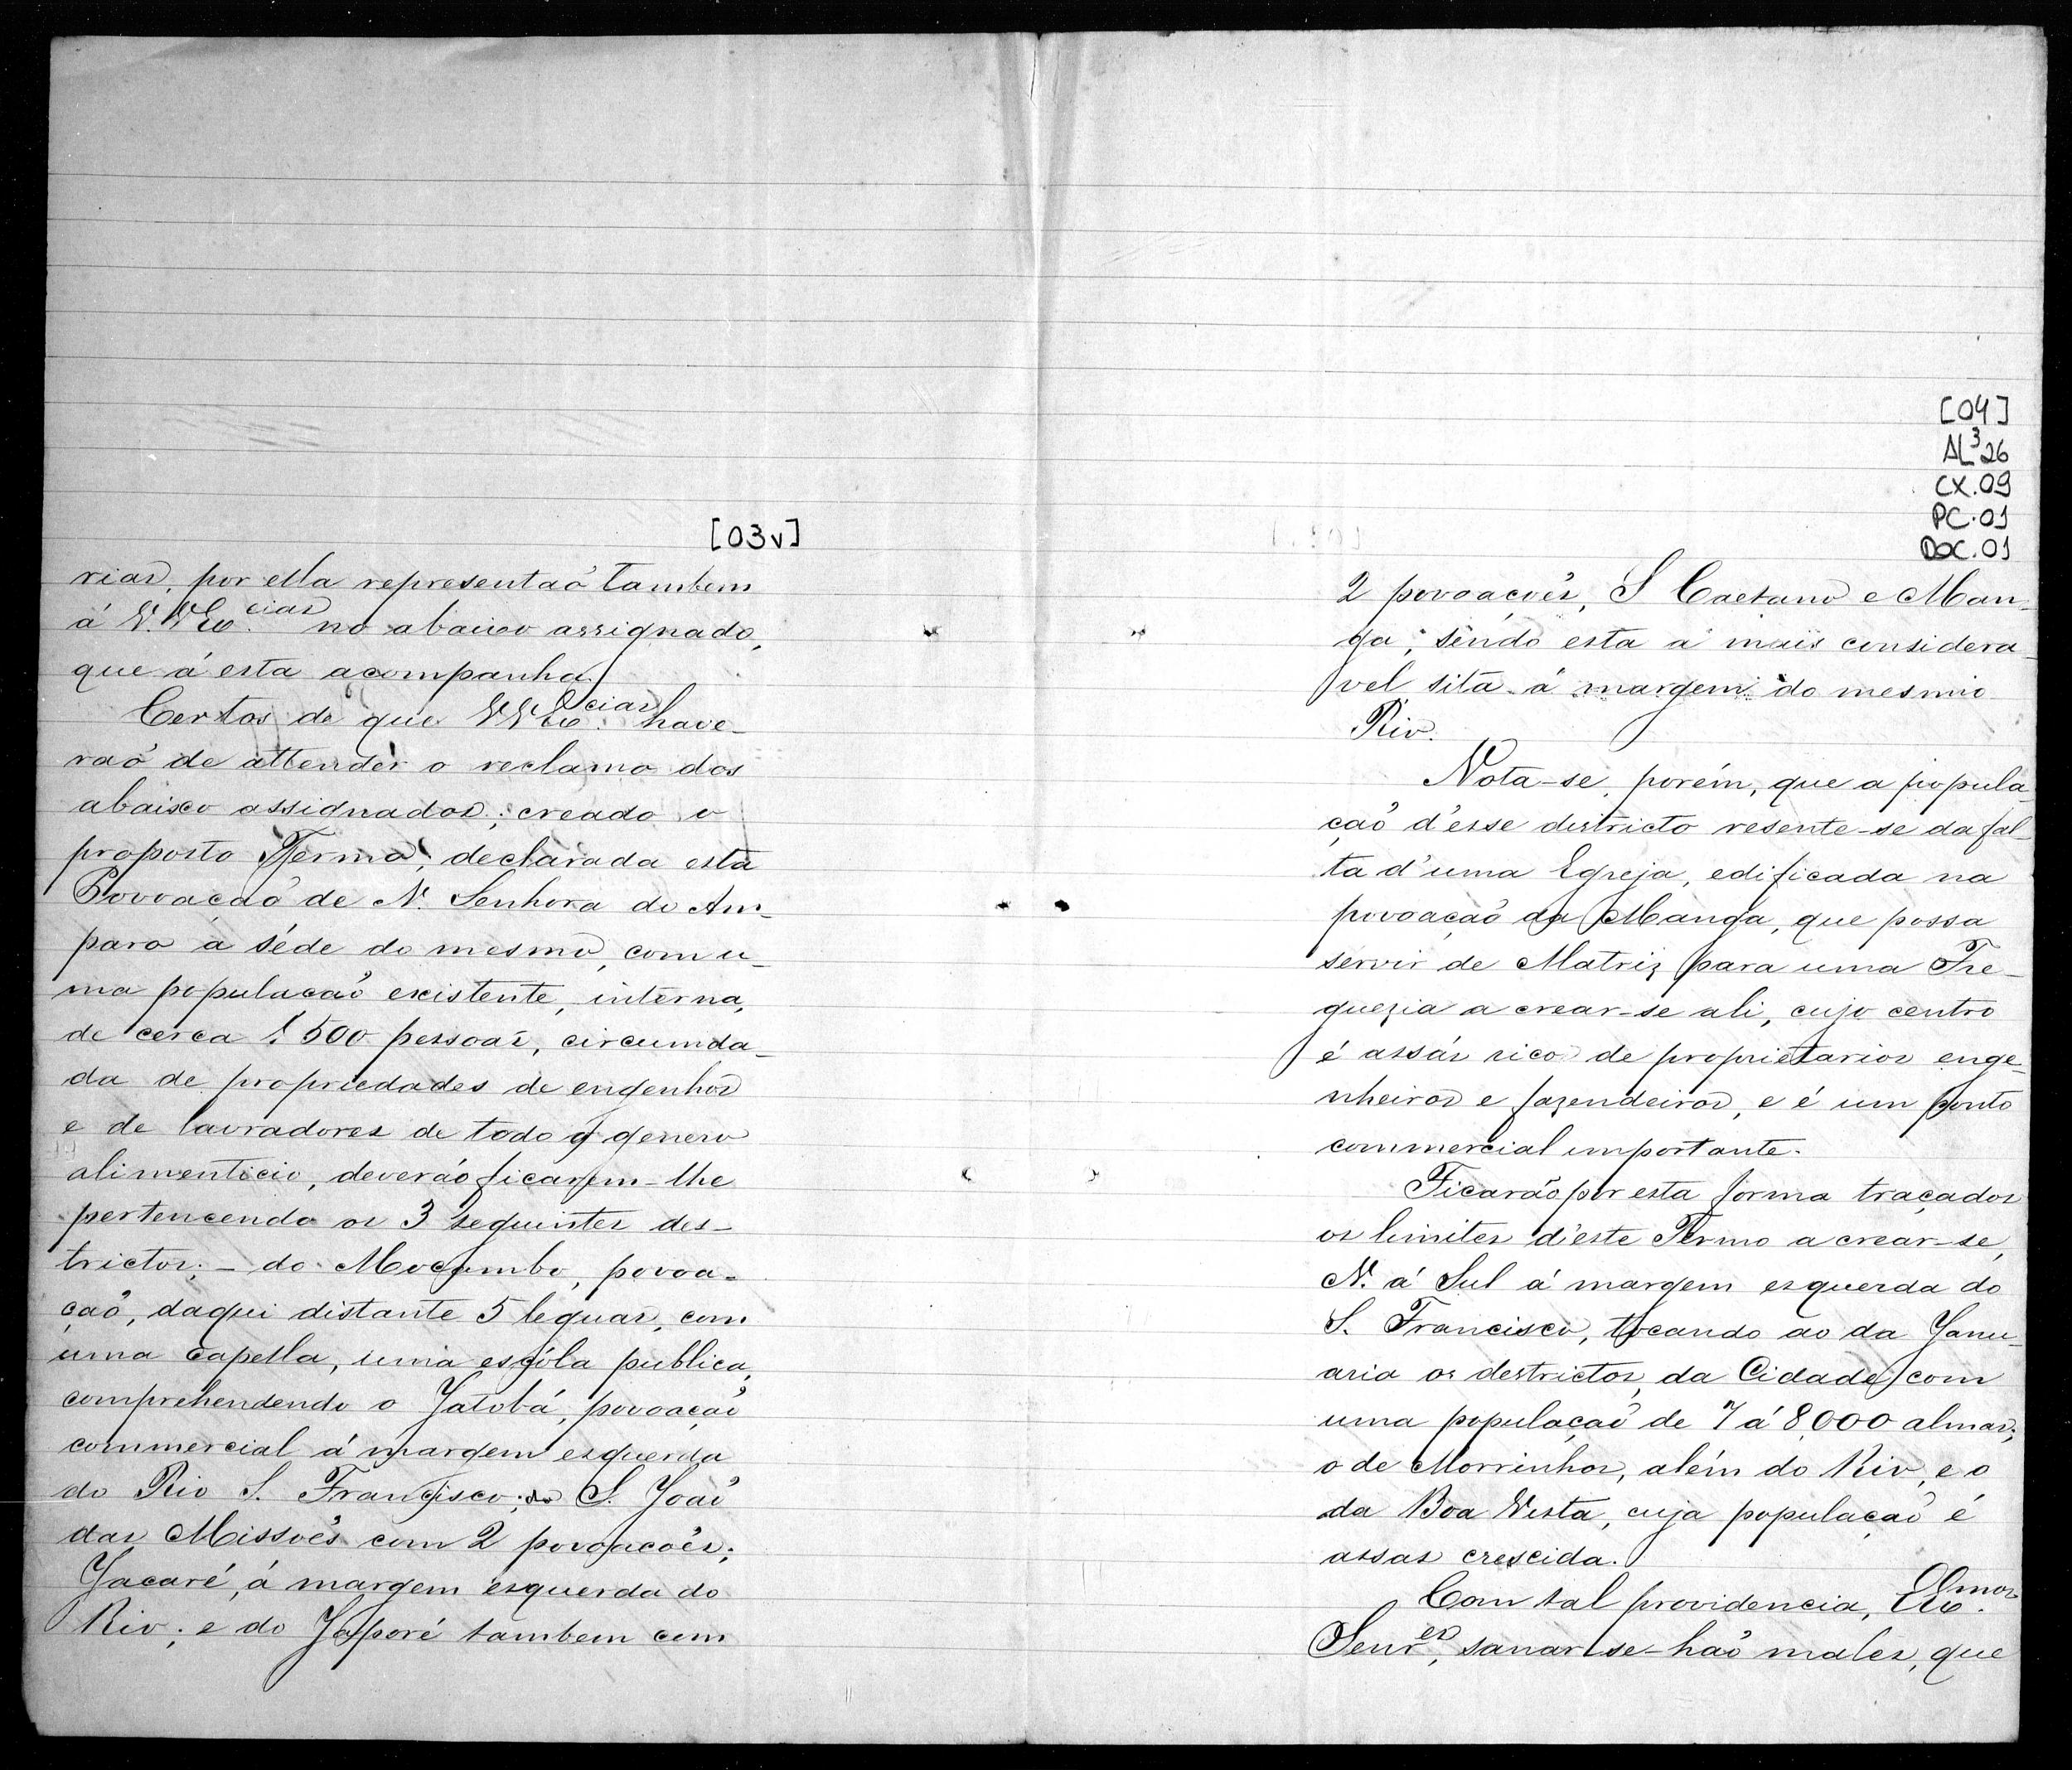 [03v]
rias, por ella representaõ tambem
á V.V Ex.cias no abaixo assignado,
que á esta acompanha.
Certos de que VVEx.cias have-
raõ de attender o reclamo dos
abaixo assignados; creado o
proposto Termo; declarada esta
Povoaçaõ de N. Senhora do Am-
paro a séde do mesmo, com u-
ma populacaõ existente, interna,
de cerca 1.500 pessoas, circumda-
da de propriedades de engenhos
e de lavradores de todo o genero
alimenticio, deverão ficarem-lhe
pertencendo os 3 seguintes des-
trictos; - do Mocambo, povoa-
çaõ, daqui distante 5 leguas, com
uma capella, uma escóla publica,
comprehendendo o Jatobá, povoaçaõ
commercial á margem esquerda
do Rio S. Francisco; do S. Joaõ
das Missoẽs com 2 povoacoẽs;
Jacaré, á margem esquerda do
Rio; e do Japoré tambem com
[04]
AL³26
CX.09
PC.01
DOC.01
2 povoaçoẽs, S Caetano e Man-
ga; sendo esta a mais considera-
vel sita á margem do mesmo
Rio.
Nota-se, porém, que a popula-
çaõ d'esse districto resente-se da fal-
ta d'uma Egreja, edificada na
povoaçaõ da Manga, que possa
servir de Matriz para uma Fre-
guezia a crear-se ali, cujo centro
é assás rico de proprietarios enge-
nheiros e fazendeiros, e é um ponto
commercial importante.
Ficarão por esta forma traçados
os limites d'este Termo a crear-se,
N. á Sul á margem esquerda do
S. Francisco, tocando ao da Janu-
aria os destrictos, da Cidade com
uma populaçaõ de 7 á 8,000 almas;
o de Morrinhos, além do Rio, e o
da Boa Vista, cuja populaçaõ é
assas crescida.
Com tal providencia, Ex.mos
Senr.es, sanar-se-haõ males, que